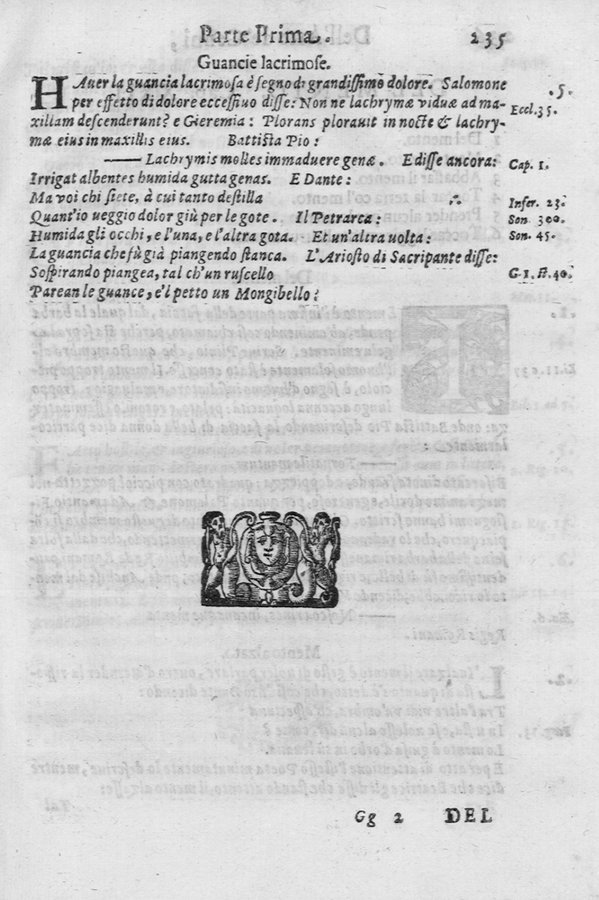 Parte Prima. 235
Guancie lacrimose.
HAuer la guancia lacrimosa è segno di grandissimo dolore. Salomone .5.
per effetto di dolore eccessiuo disse: Non ne lachrymæ viduæ ad ma- Eccl.35.
xillam descenderunt? e Gieremia: Plorans plorauit in nocte & lachry-
mæ eius in maxillis eius. Battista Pio:
—— Lachrymis molles immaduere genæ. E disse ancora: Cap. 1.
Irrigat albentes humida gutta genas. E Dante:
Ma voi chi siete, à cui tanto destilla Infer. 23.
Quant'io ueggio dolor giù per le gote. Il Petrarca: Son. 300.
Humida gli occhi, e l'una, e l'altra gota. Et un'altra uolta: Son. 45.
La guancia che fù già piangendo stanca. L'Ariosto di Sacripante disse:
Sospirando piangea, tal ch'un ruscello C. 1. st. 40.
Parean le guance, e'l petto un Mongibello:
Gg 2 DEL